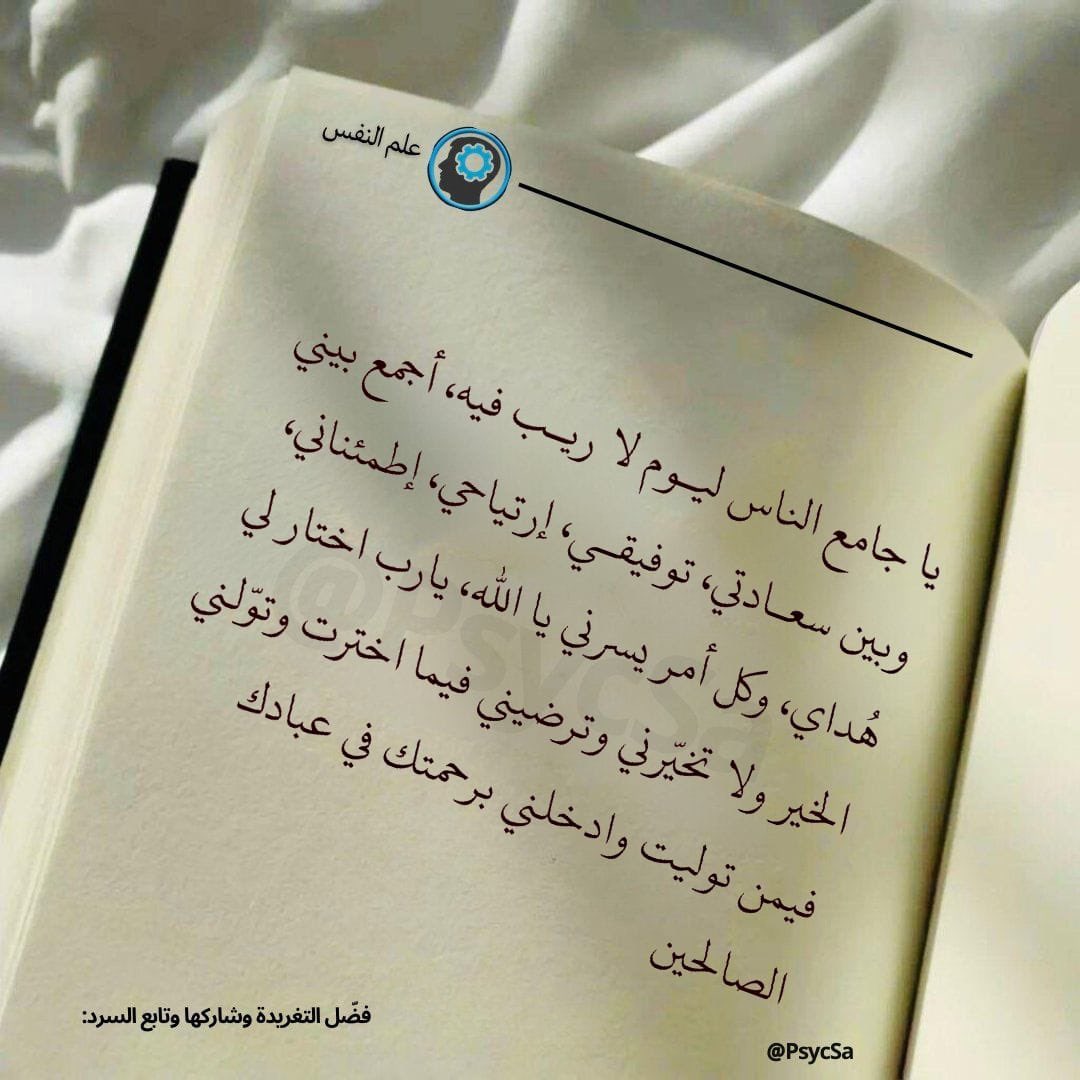 علم النفس
يا جامع الناس ليوم لا ريب فيه، أجمع بيني
وبين سعادتي، توفيقي، إرتياحي، إطمئناني،
هُداي، وكل أمر يسرني يا الله، يارب اختار لي
الخير ولا تخيّرني وترضيني فيما اخترت وتوّلني
فيمن توليت وادخلني برحمتك في عبادك
الصالحين
@PsycSa
فضّل التغريدة وشاركها وتابع السرد:
@PsycSa